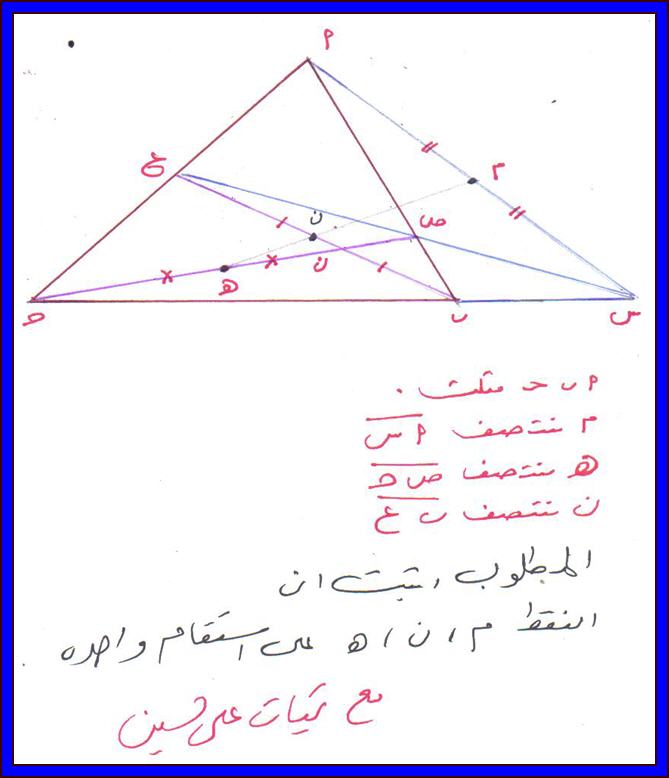 م
ع
م
ن
ص
ن
ه
ح
ب
س
م ب ح مثلث .
م منتصف م س
ه منتصف ص ح
ن منتصف ب ع
المطلوب اثبت ان
النقط م ، ن ، ه على استقامة واحده
مع تحيات على حسين